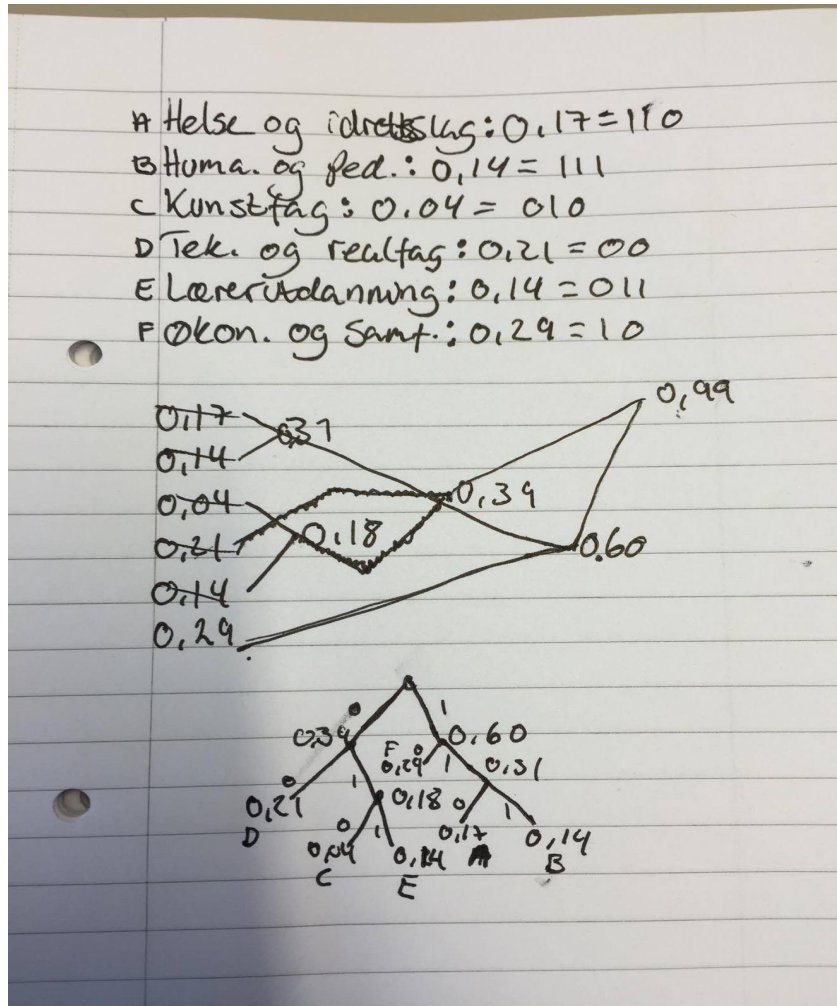 A Helse og idrettslag: 0,17 = 110
B Huma. og ped.: 0,14 = 111
C Kunstfag: 0.04 = 010
D Tek. og realfag: 0,21 = 00
E Lærerutdanning: 0,14 = 011
F Økon. og samf.: 0,29 = 10
0,99
0,17
0,31
0,14
0,04
0,39
0,21
0,18
0.60
0,14
0,29
0 1
0,39 0,60
F 0
0,29 1 0,31
0 1
0,21 0,18 0 1
D
0 1 0,17 0,14
0,04 0,14 A B
C E